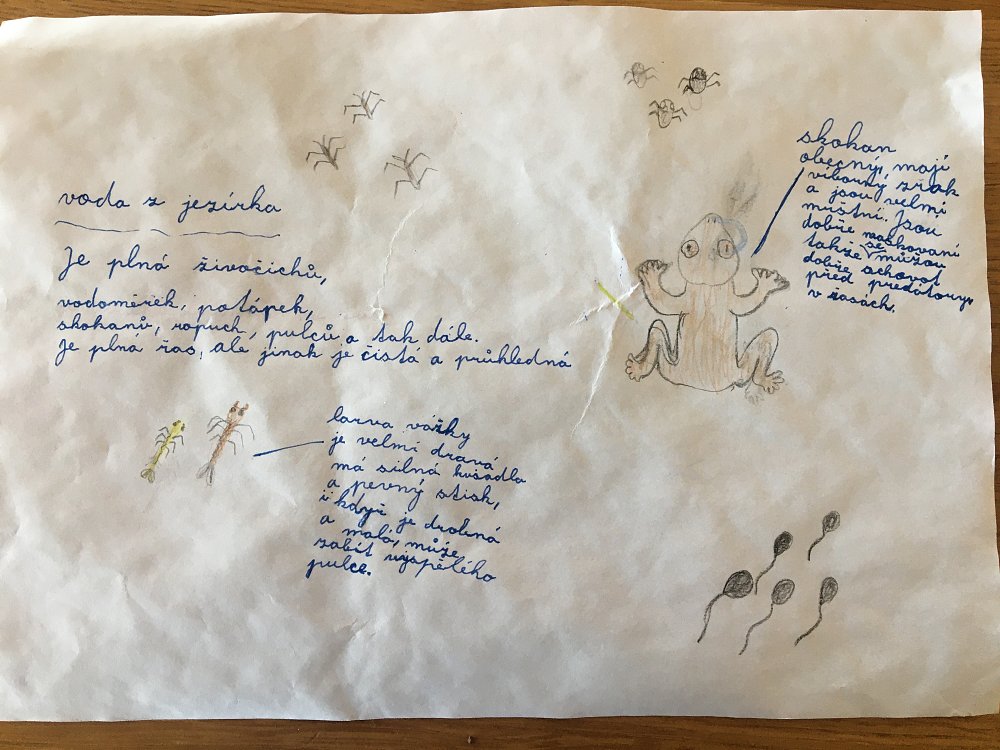 voda z jezírka
Je plná živočichů,
vodoměrek, potápek,
skokanů, ropuch, pulců, a tak dále.
Je plná řas, ale jinak je čistá a průhledná
skokan
obecný, mají
víborný zrak
a jsou velmi
mrštní. Jsou
dobře maskovaní
takže se můžou
dobře schovat
před predátory
v řasách.
larva vážky
je velmi dravá
má silná kusadla
a pevný stisk,
i když je drobná
a malá, může
zabít vyspělého
pulce.